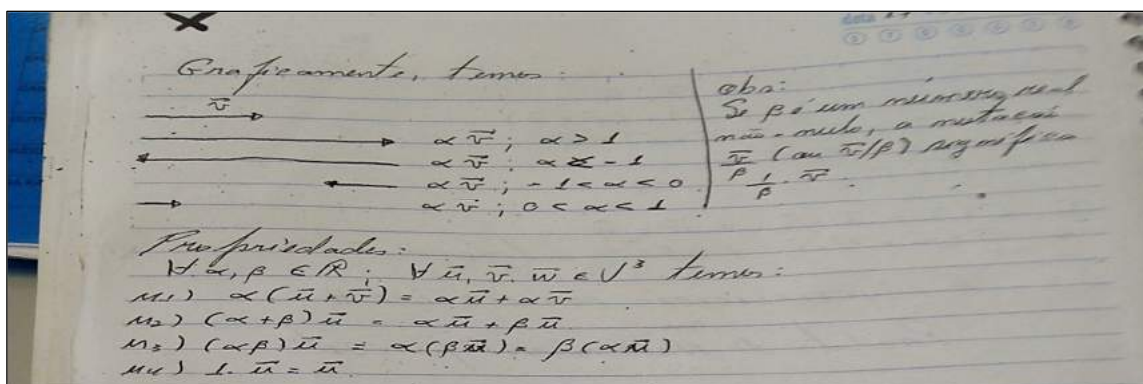 Graficamente, temos:
v⃗
α v⃗ ; α > 1
α v⃗ ; α < -1
α v⃗ ; -1 < α < 0
α v⃗ ; 0 < α < 1
obs:
Se β é um número real
não-nulo, a notação
v⃗/β (ou v⃗/β) significa
1/β · v⃗.
Propriedades:
∀ α, β ∈ ℝ ; ∀ u⃗, v⃗, w⃗ ∈ V³ temos:
M₁) α(u⃗ + v⃗) = αu⃗ + αv⃗
M₂) (α + β)u⃗ = αu⃗ + βu⃗
M₃) (αβ)u⃗ = α(βu⃗) = β(αu⃗)
M₄) 1. u⃗ = u⃗.